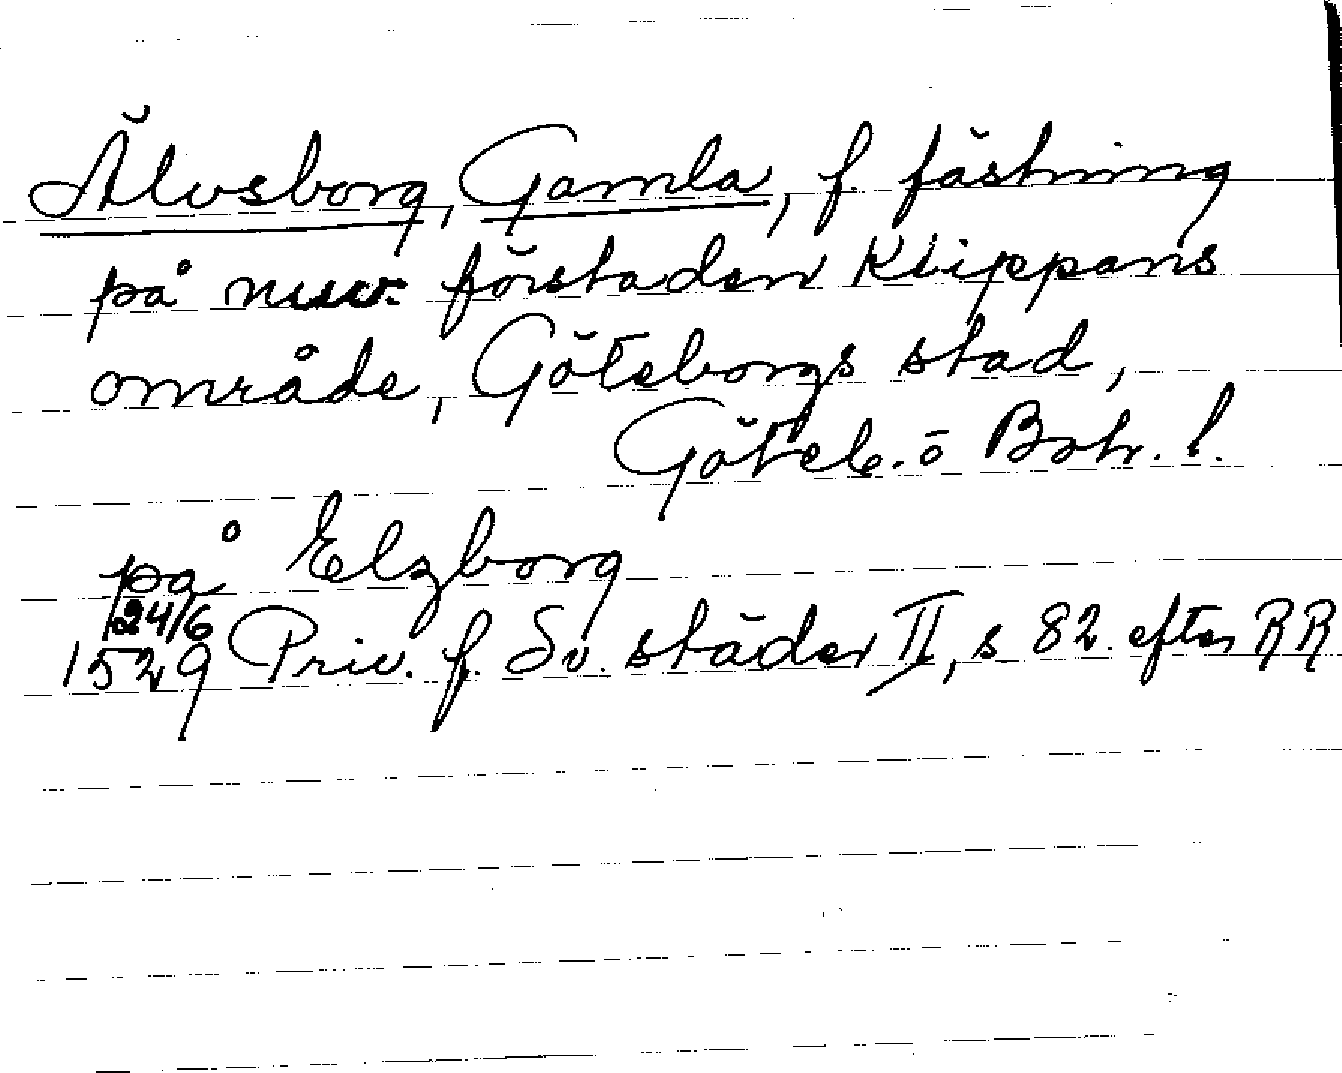 Älvsborg, Gamla, f. fästning
på nuv. förstaden Klippans
område, Göteborgs stad,
Göteb. o Boh. l.
på Elzborg
24/6
1529 Priv. f. Sv. städer II, s 82 efter RR